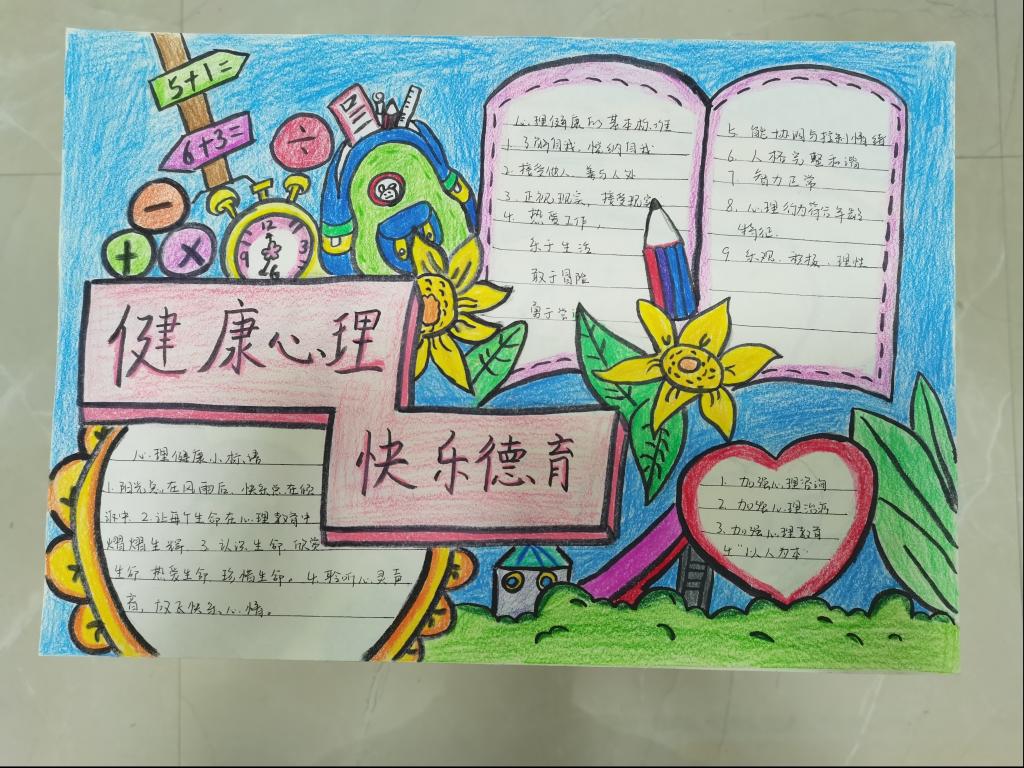 5+1=
6+3=
÷
-
+
×
12
9
3
6
健康心理
快乐德育
心理健康的基本标准
1. 了解自我、悦纳自我
2. 接受他人、善与人处
3. 正视现实、接受现实
4. 热爱工作,
乐于生活
敢于冒险
勇于尝
5 能协调与控制情绪
6. 人格完整和谐
7 智力正常
8. 心理行为符合年龄
特征.
9 乐观、积极、理性
心理健康小标语
1.阳光总在风雨后、快乐总在
中. 2.让每个生命在心理教育中
熠熠生辉. 3.认识生命 欣赏
生命 热爱生命 珍惜生命。4.聆听心灵声
音,放飞快乐心情。
1. 加强心理咨询
2. 加强心理治疗
3. 加强心理教育
4 "以人为本"